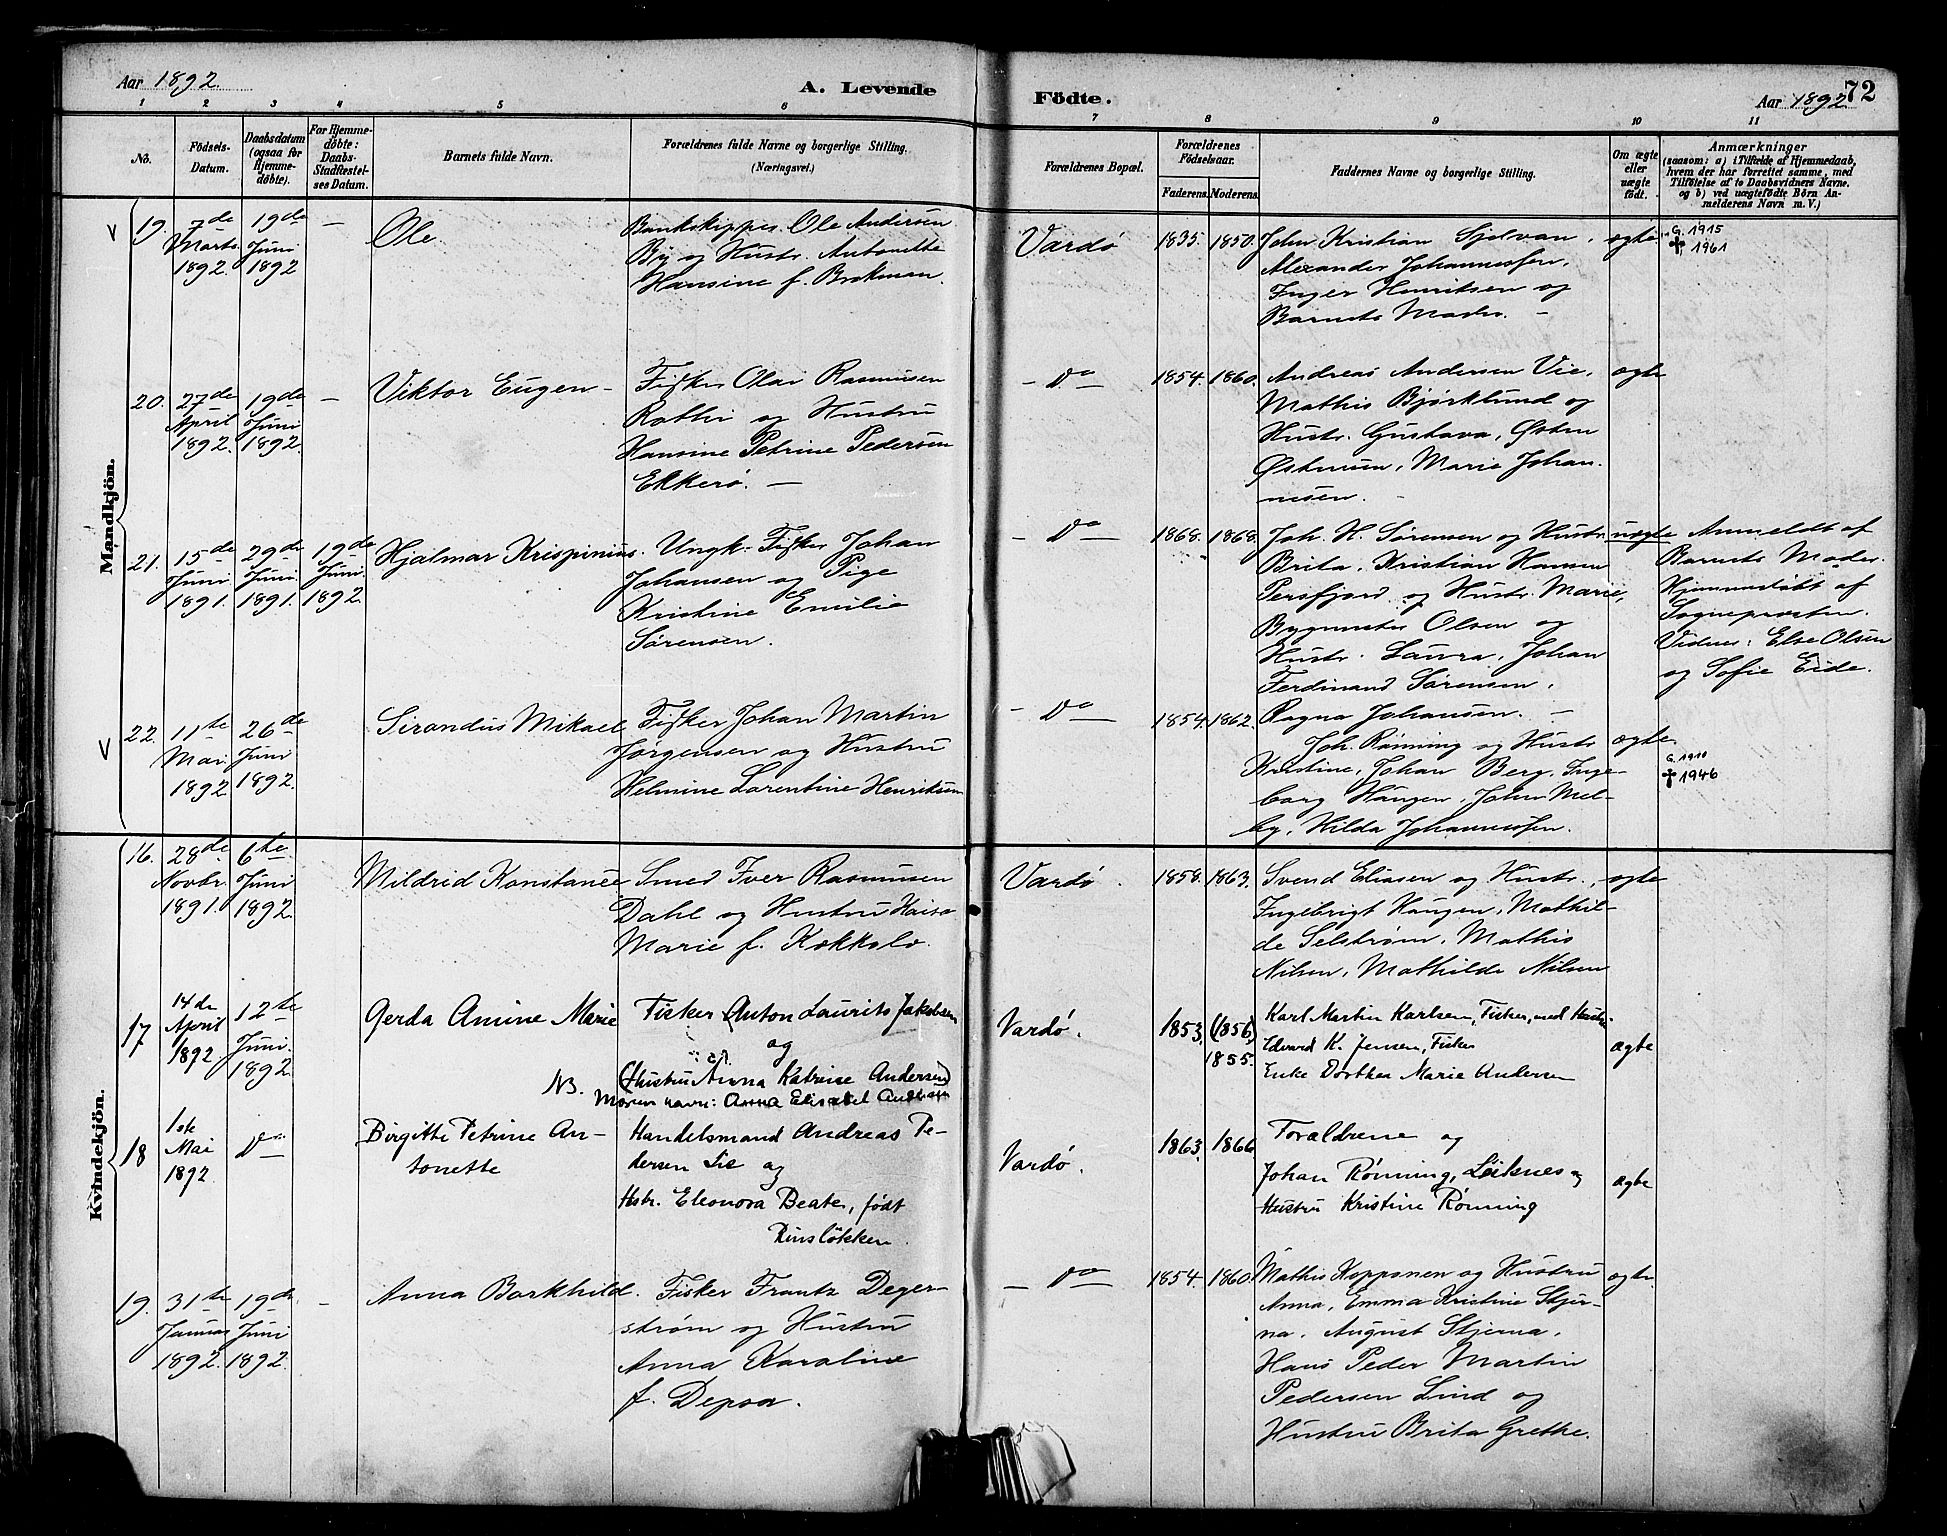 Aar 1892.
A. Levende
Födte.
Aar 1892
72
1 2 3 4 5 6 7 8 9 10 11
No.
Födsels-
Datum.
Daabsdatum
(ogsaa for
Hjemme-
døbte).
For Hjemme-
døbte:
Daabs-
Stadfæstel-
ses Datum.
Barnets fulde Navn.
Forældrenes fulde Navne og borgerlige Stilling.
(Næringsvei.)
Forældrenes Bopæl.
Forældrenes
Födselsaar.
Faderens.
Moderens.
Faddernes Navne og borgerlige Stilling.
Om ægte
eller
uægte
født.
Anmærkninger
(saasom: a) i Tilfælde af Hjemmedaab,
hvem der har forrettet samme, med
Tilføielse af to Daabsvidners Navne,
og b) ved uægtefødte Børn An-
melderens Navn m. V.)
Mandkjön.
19.
7de
Marts
1892.
19de
Juni
1892
–
Ole.
Ole Andersen
By og Hustr. Antonette
Hansine f. Brekman.
Vardø
1835.
1850.
John Kristian Sjelvan,
Alexander Johannessen,
Inger Henritsen og
Barnets Moder. –
ægte
G. 1915
✝ 1961
20.
27de
April
1892.
19de
Juni
1892.
–
Viktor Eugen –
Fisker Olai Rasmusen
og Hustru
Hansine Petrine Pedersen
Ekkerö. –
– Do –
1854.
1860.
Andreas Andersen Vie,
Mathis Bjørklund og
Hustr. Gustava, Østen
Marie Johan-
nesen.
ægte
21.
15de
Juni
1891.
29de
Juni
1891.
19de
Juni
1892.
Hjalmar Krispinius.
Ungk. Fisker Johan
Johansen og Pige
Kristine Emilie
Sørensen.
– Do –
1868.
1868.
Joh. H. Sørensen og Hustr.
Brita, Kristian Hansen
Persfjord og Hustr. Marie,
Bygmester Olsen og
Hustr. Laura, Johan
Ferdinand Sørensen,
Ragna Johansen. –
uægte
Anmeldt af
Barnets Moder.
Hjemmedøbt af
Sognepresten.
Vidner: Else Olsen
og Sofie Eide.
22.
11te
Mai
1892
26de
Juni
1892.
Sirandus Mikael
Fisker Johan Martin
Jørgensen og Hustru
Helmine Lorentine Henriksen
– Do –
1854.
1862.
Joh. Rønning og Hustr
Kristine, Johan Berg, Inge-
borg Haugen, John Mel-
by, Hilda Johannessen.
ægte
G. 1910
✝ 1946
Kvindekjön.
16.
28de
Novbr.
1891.
6te
Juni
1892.
Mildrid Konstance
Smed Iver Rasmusen
Dahl og Hustru Kaisa
Marie f. Kokkolo.
Vardø.
1858.
1863.
Svend Eliasen og Hustr.,
Ingebrigt Haugen, Mathil-
de Selstrøm, Mathis
Nilsen, Mathilde Nilsen
ægte
17
14de
April
1892
12te
Juni
1892
Gerda Amine Marie
NB.
Fisker Anton Laurits Jakobsen
og
(Hustru Anna Katrine Andersen)
Moren navn: Anna Elisabet Andersen
Vardø.
1853.
(1856)
1855.
Karl Martin Karlsen, Fisker, med Hustru.
Edvard K. Jensen, Fisker
Enke Dorthea Marie Andersen
ægte
18
1ste
Mai
1892
Do
Birgitte Petrine An-
tonette
Handelsmand Andreas Pe-
dersen Lie og
Hstr. Eleonora Beate, født
Rinsløkken.
Vardø.
1863.
1866
Forældrene og
Johan Rønning, Leiknes og
Hustru Kristine Rønning
ægte
19.
31te
Januar
1892.
19de
Juni
1892.
–
Anna Borkhild.
Fisker Frantz Deger-
strøm og Hustru
Anna Karoline
f. Depoa.
– Do –
1854.
1860.
Mathis Kopponen og Hustru
Anna, Emma Kristine Stjer-
na, August Stjerna,
Hans Peder Martin
Pedersen Lind og
Hustru Brita Grethe.
ægte